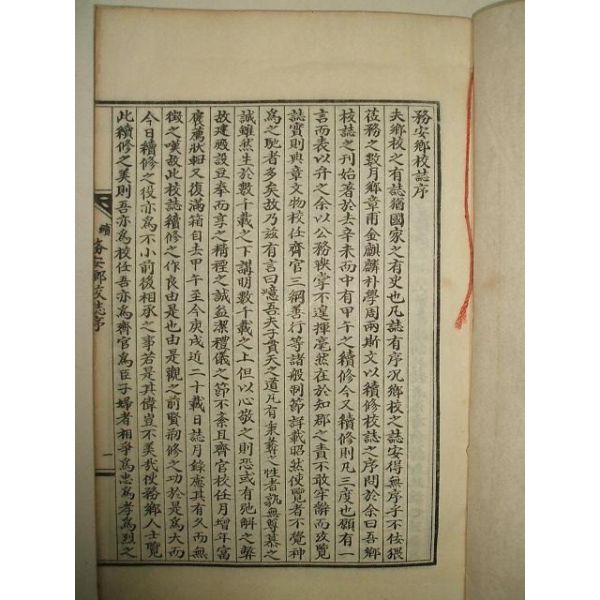 務安鄉校誌序
夫鄉校之有誌猶國家之有史也凡誌有序況鄉校之誌安得無序乎不佞猥
莅務之數月鄉章甫金麒麟朴學周兩斯文以續修校誌之序問於余曰吾鄉
校誌之刊始著於去辛未而中有甲午之續修今又續修則凡三度也願有一
言而表以弁之余以公務鞅掌不遑揮毫然在於知郡之責不敢牢辭而攷覽
誌實則典章文物校任齊官三綱善行等諸般制節詳載昭然使覽者不覺神
爲之馳者多矣故乃玆有言曰噫吾夫子貫天之道凡有秉彝之性者孰無尊慕之
誠雖然生於數千載之下講明數千載之上但以心敬之則恐或有弛斁之弊
故建殿設豆奉而享之精禋之誠益潔禮儀之節不紊且齊官校任月增年富
褒薦狀辭又復滿箱自去甲午至今庚戌近二十載日誌月錄應其有久而無
徵之嘆故此校誌續修之作良由是也由是觀之前賢刱修之功於是爲大而
今日續修之役亦爲不小前後相承之事若是其偉豈不美哉使務鄉人士覽
此續修之美則吾亦爲校任吾亦爲齊官爲臣子婦者相爭爲忠爲孝爲烈之
續 務安鄉校誌序
一